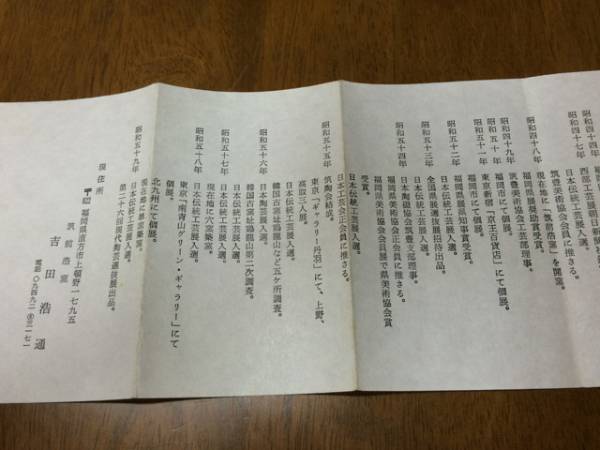 昭和四十四年
西部工芸展朝日新聞社
昭和四十七年
日本伝統工芸展入選。
筑豊美術協会会員に推さる。
現在地に「筑前焼窯」を開窯。
福岡県展奨励賞受賞。
筑豊美術協会工芸部理事。
昭和四十九年
福岡市にて個展。
昭和五十年
東京新宿「京王百貨店」にて個展。
昭和五十一年
福岡市にて個展。
福岡県展県知事賞受賞。
昭和五十二年
日本伝統工芸展入選。
全国県展選抜展招待出品。
昭和五十三年
日本伝統工芸展入選。
日本陶磁協会筑豊支部理事。
昭和五十四年
福岡県美術協会正会員に推さる。
福岡県美術協会会員展で県美術協会賞
受賞。
日本伝統工芸展入選。
日本工芸会正会員に推さる。
昭和五十五年
筑陶会結成。
東京「ギャラリー丹羽」にて、上野、
高取三人展。
日本伝統工芸展入選。
昭和五十六年
日本陶芸展入選。
韓国古窯址鶏龍山など五ケ所調査。
韓国古窯址鶏龍山第二次調査。
昭和五十七年
日本伝統工芸展入選。
現在地に穴窯築窯。
昭和五十八年
日本伝統工芸展入選。
東京「南青山グリーン・ギャラリー」にて
個展。
北九州にて個展。
昭和五十九年
日本伝統工芸展入選。
第二十六回現代陶芸選抜展出品。
現住所
福岡県直方市上頓野一七九五
吉田浩通
電話〇九四九二